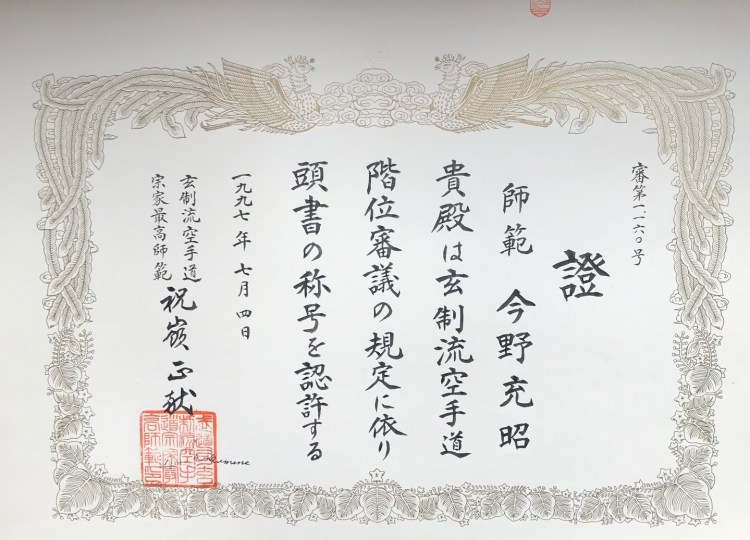 審第一、一六〇号
證
師範 今野充昭
貴殿は玄制流空手道
階位審議の規定に依り
頭書の称号を認許する
一九九七年七月四日
玄制流空手道
宗家最高師範
祝嶺正献